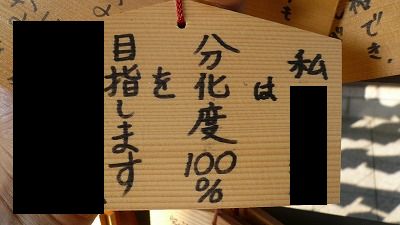 私は
分化度100%
を
目指します